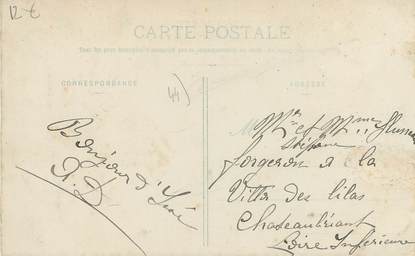 12 €
CARTE POSTALE
CORRESPONDANCE
ADRESSE
44
Mr et Mme
Stéphane
forgeron a la
Villa des lilas
Chateaubriant
Loire Inférieure
Bonjour d'